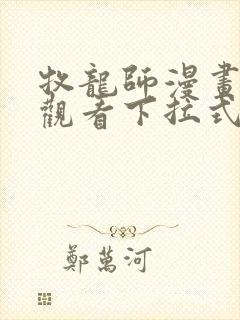 牧龍師漫畫
觀看下拉式
鄭萬河